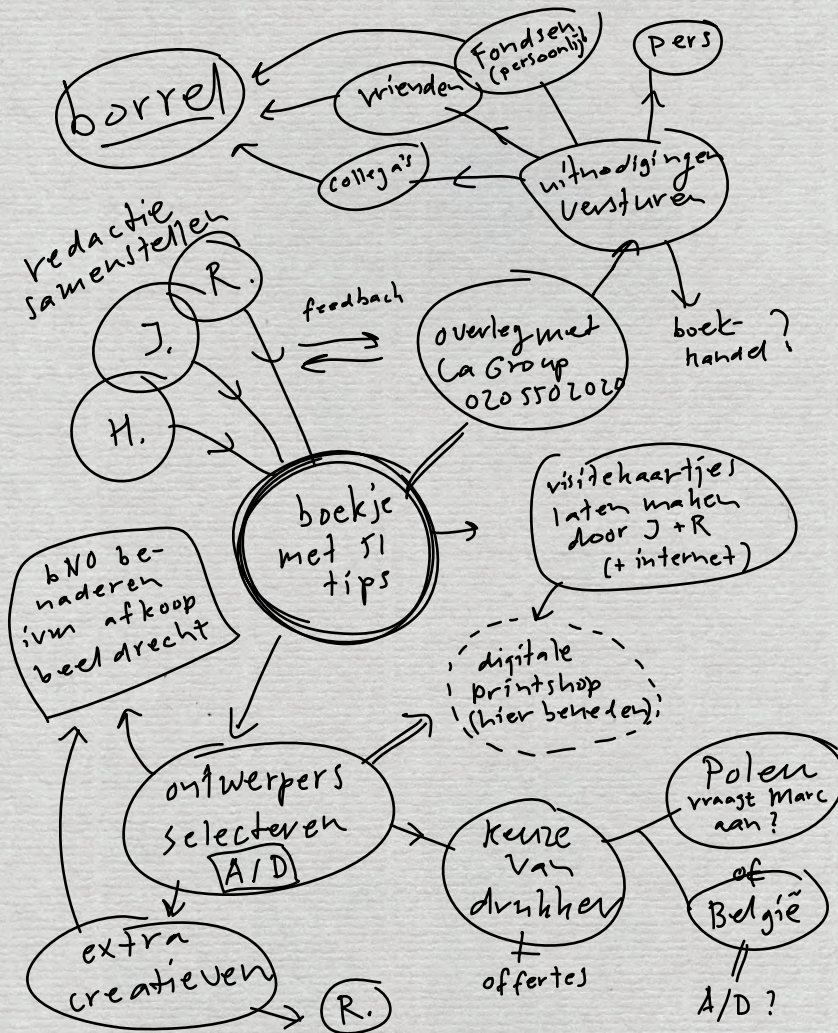 Fondsen
(persoonlijk)
pers
borrel
vrienden
collega's
uitnodigingen
versturen
redactie
samenstellen
R.
J.
H.
feedback
overleg met
Ca Group
020 5502020
boek-
handel?
boekje
met 51
tips
visitekaartjes
laten maken
door J + R
(+ internet)
bNO be-
naderen
ivm afkoop
beeldrecht
digitale
printshop
(hier beneden)
ontwerpers
selecteren
A/D
keuze
van
drukker
offertes
Polen
vraagt Marc
aan?
of
België
A/D ?
extra
creatieven
R.